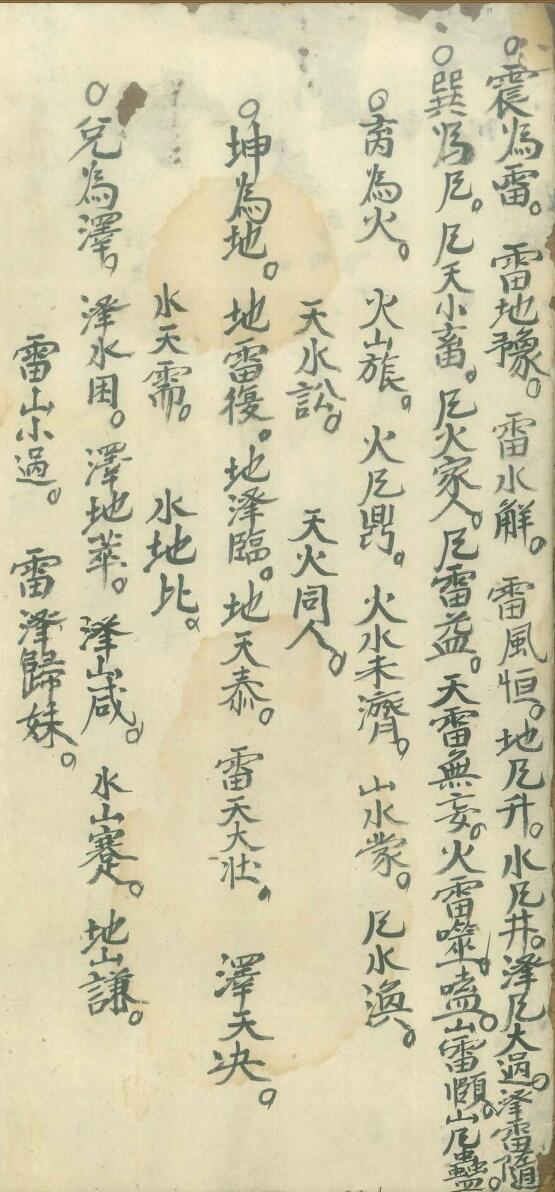 ○震為雷。雷地豫。雷水解。雷風恒。地𠘨升。水𠘨井。澤𠘨大過。澤雷隨。
○巽為𠘨。𠘨天小畜。𠘨火家人。𠘨雷益。天雷無妄。火雷噬嗑。山雷頤。山𠘨蠱。
○离為火。火山旅。火𠘨鼎。火水未濟。山水蒙。𠘨水渙。
天水訟。天火同人。
○坤為地。地雷復。地澤臨。地天泰。雷天大壯。澤天决。
水天需。水地比。
○兌為澤。澤水困。澤地萃。澤山咸。水山蹇。地山謙。
雷山小過。雷澤歸妹。